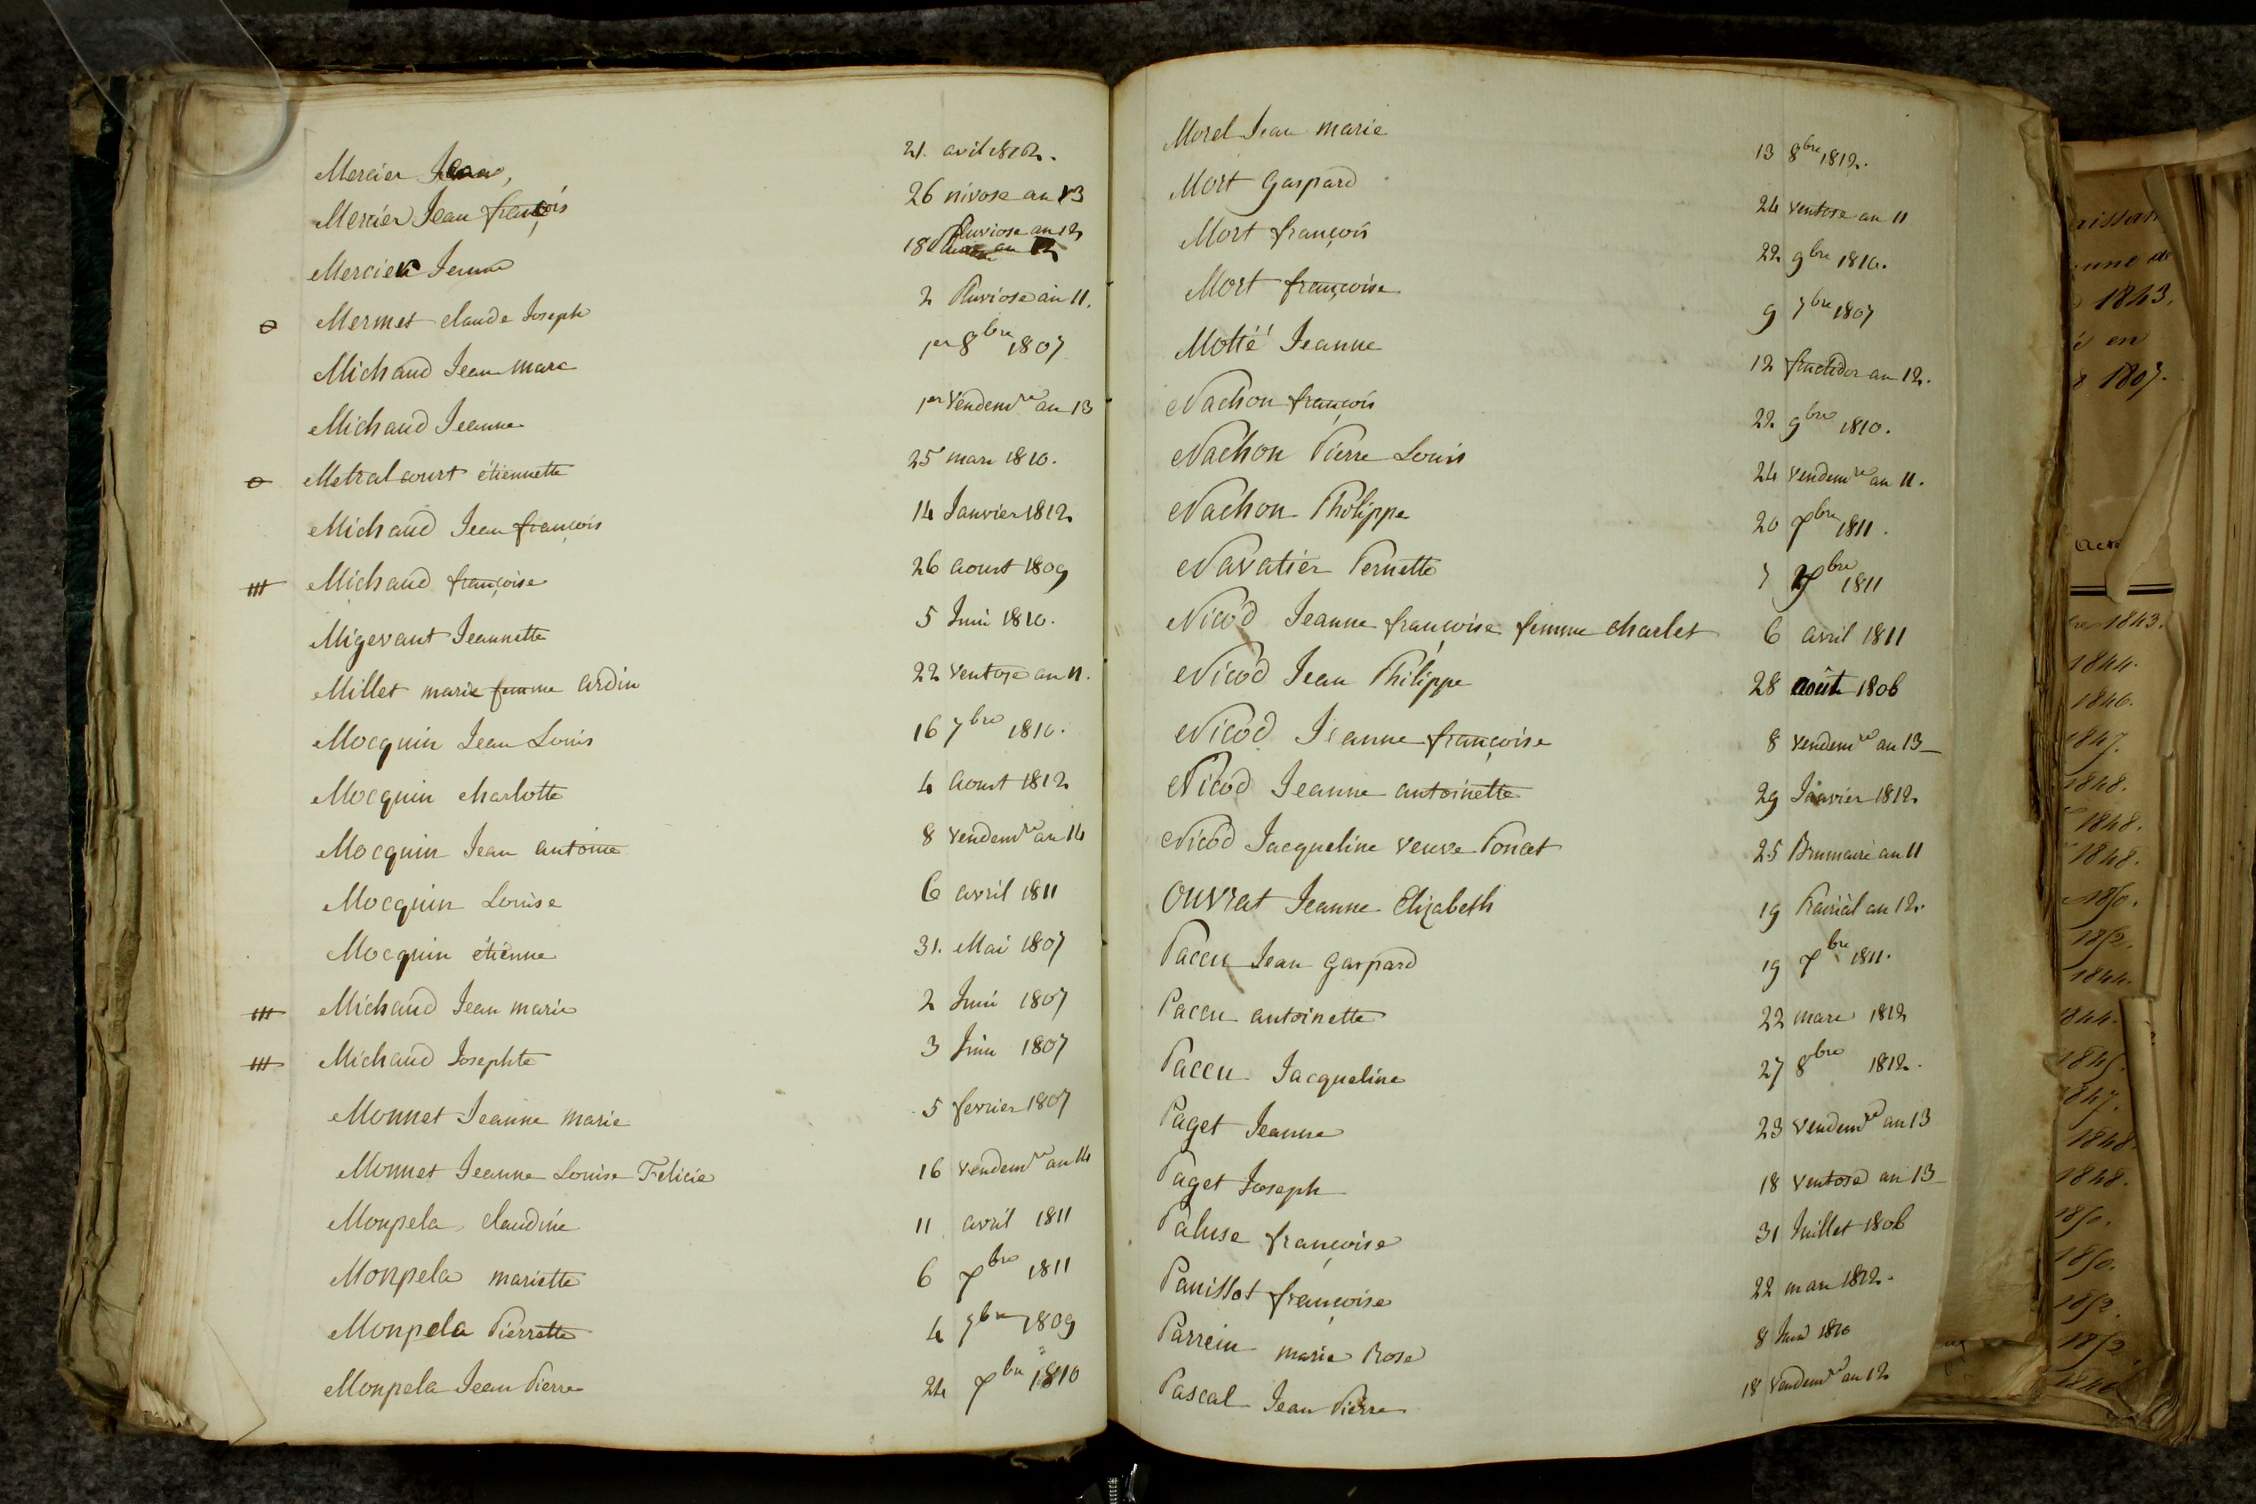 Mercier Jean, 21. avil 1812.
Mercier Jean françois 26 nivose an 13
Mercier Jeanne 18 Pluviose an 12
Mermet claude Joseph 2 Pluviose an 11.
Michaud Jean marc 1er 8bre 1807
Michaud Jeanne 1er Vendemre an 13
Metral court étiennette 25 mars 1810.
Michaud Jean françois 14 Janvier 1812
Michaud françoise 26 aoust 1809
Migevant Jeannette 5 Juin 1810.
Millet marie femme Ardin 22 ventose an 11.
Mocquin Jean Louis 16 7bre 1810.
Mocquin charlotte 4 aoust 1812
Mocquin Jean antoine 8 Vendemre an 14
Mocquin Louise 6 avril 1811
Mocquin étienne 31. Mai 1807
Michaud Jean marie 2 Juin 1807
Michaud Josephte 3 Juin 1807
Monnet Jeanne marie 5 fevrier 1807
Monnet Jeanne Louise Felicie 16 vendemre an 14
Monpela claudine 11 avril 1811
Monpela mariette 6 7bre 1811
Monpela Pierrette 4 9bre 1809
Monpela Jean Pierre 24 7bre 1810
Morel Jean marie 13 8bre 1812.
Mort Gaspard 24 ventose an 11
Mort françois 22 9bre 1810.
Mort françoise 9 7bre 1807
Motté Jeanne 12 fructidor an 12.
Nachon françois 22 9bre 1810.
Nachon Pierre Louis 24 Vendemre an 11.
Nachon Philippe 20 7bre 1811.
Navatier Pernette 7 7bre 1811
Nicod Jeanne françoise femme charlet 6 avril 1811
Nicod Jean Philippe 28 août 1806
Nicod Jeanne françoise 8 vendemre an 13
Nicod Jeanne antoinette 29 Janvier 1812
Nicod Jacqueline veuve Poncet 25 Brumaire an 11
Ouvrat Jeanne Elizabeth 19 Prairial an 12.
Paccu Jean Gaspard 19 7bre 1811.
Paccu antoinette 22 mars 1812
Paccu Jacqueline 27 8bre 1812.
Paget Jeanne 23 vendemre an 13
Paget Joseph 18 ventose an 13
Paluse françoise 31 Juillet 1806
Panissot françoise 22 mars 1812.
Parrein marie Rose 8 Juin 1810
Pascal Jean Pierre 18 Vendemre an 12
1843.
en
1807.
1843.
1844.
1846.
1847.
1848.
1848.
1848.
1850.
1852.
1844.
1844.
1845.
1847.
1848.
1848.
1850.
1850.
1852.
1852.